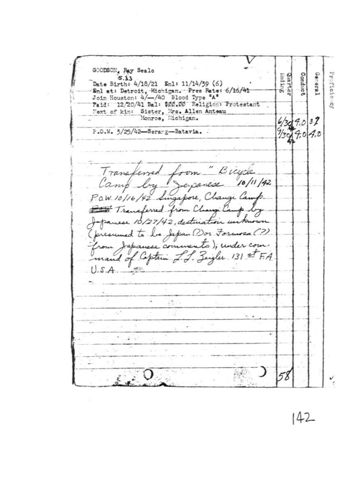 GOODSON, Ray Seale
S.13
Date Birth: 4/18/21 Enl: 11/14/39 (6)
Enl at: Detroit, Michigan. Pres Rate: 6/16/41
Join Houston: 4/--/40 Blood Type "A"
Paid: 12/20/41 Bal: Religion: Protestant
Next of kin: Sister, Mrs. Allen Anteau
Monroe, Michigan.
P.O.W. 3/25/42--Serang--Batavia.
Transferred from "Bicycle
Camp by Japanese 10/11/42
P.O.W. 10/16/42 Singapore, Change Camp.
Transferred from Change Camp by
Japanese 10/27/42, destination unknown
(presumed to be Japan (?) or Formosa (?)
from Japanese comments), under com-
mand of Captain L.L. Zeigler 131 st F.A.
U.S.A.
Quarter
Ending
Conduct
General
6/30 4.0
9/30 4.0 4.0
58
142